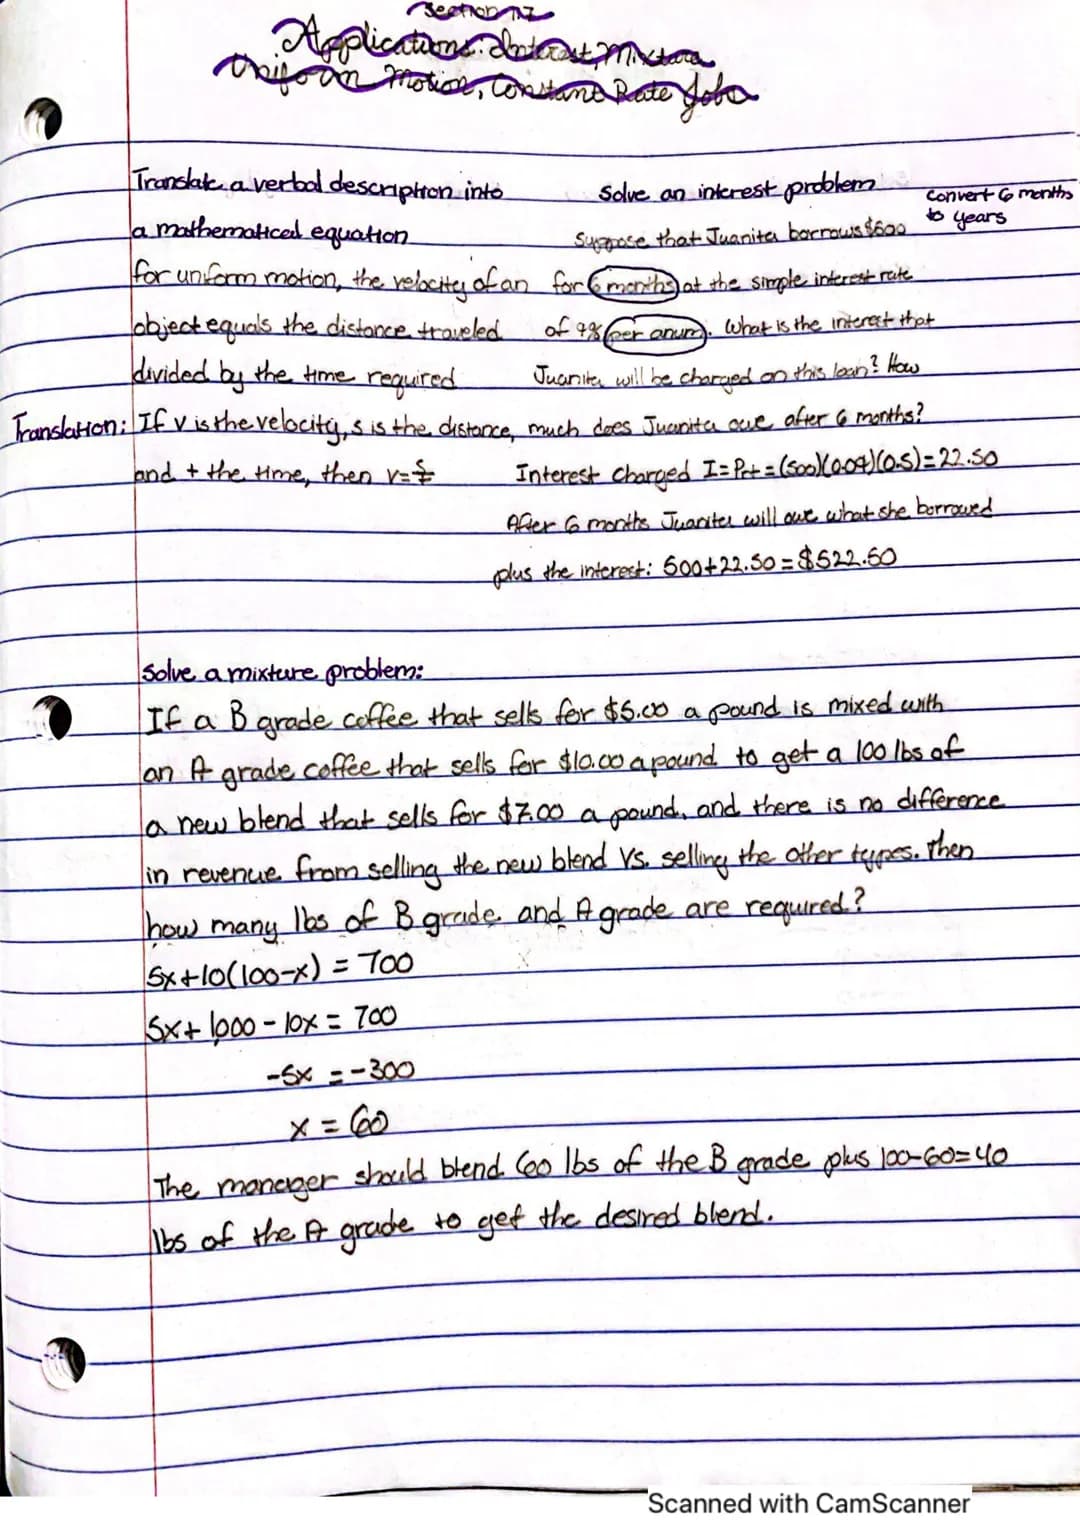 Section 1.7
Applications: Interest, Mixture
Uniform Motion, Constant Rate Jobs
Translate a verbal description into
a mathematical equation
for uniform motion, the velocity of an
object equals the distance traveled
divided by the time required
Translation: If v is the velocity, s is the distance,
and t the time, then v = s/t
Solve an interest problem
convert 6 months
to years
Suppose that Juanita borrows $500
for 6 months at the simple interest rate
of 9% per anum. What is the interest that
Juanita will be charged on this loan? How
much does Juanita owe after 6 months?
Interest Charged I = Prt = (500)(0.09)(0.5) = 22.50
After 6 months Juanita will owe what she borrowed
plus the interest: 500+22.50 = $522.50
Solve a mixture problem:
If a B grade coffee that sells for $5.00 a pound is mixed with
an A grade coffee that sells for $10.00 a pound to get a 100 lbs of
a new blend that sells for $7.00 a pound, and there is no difference
in revenue from selling the new blend vs. selling the other types. Then
how many lbs of B grade and A grade are required?
5x+10(100-x) = 700
5x+1000-10x = 700
-5x = -300
x = 60
The manager should blend 60 lbs of the B grade plus 100-60=40
lbs of the A grade to get the desired blend.
Scanned with CamScanner